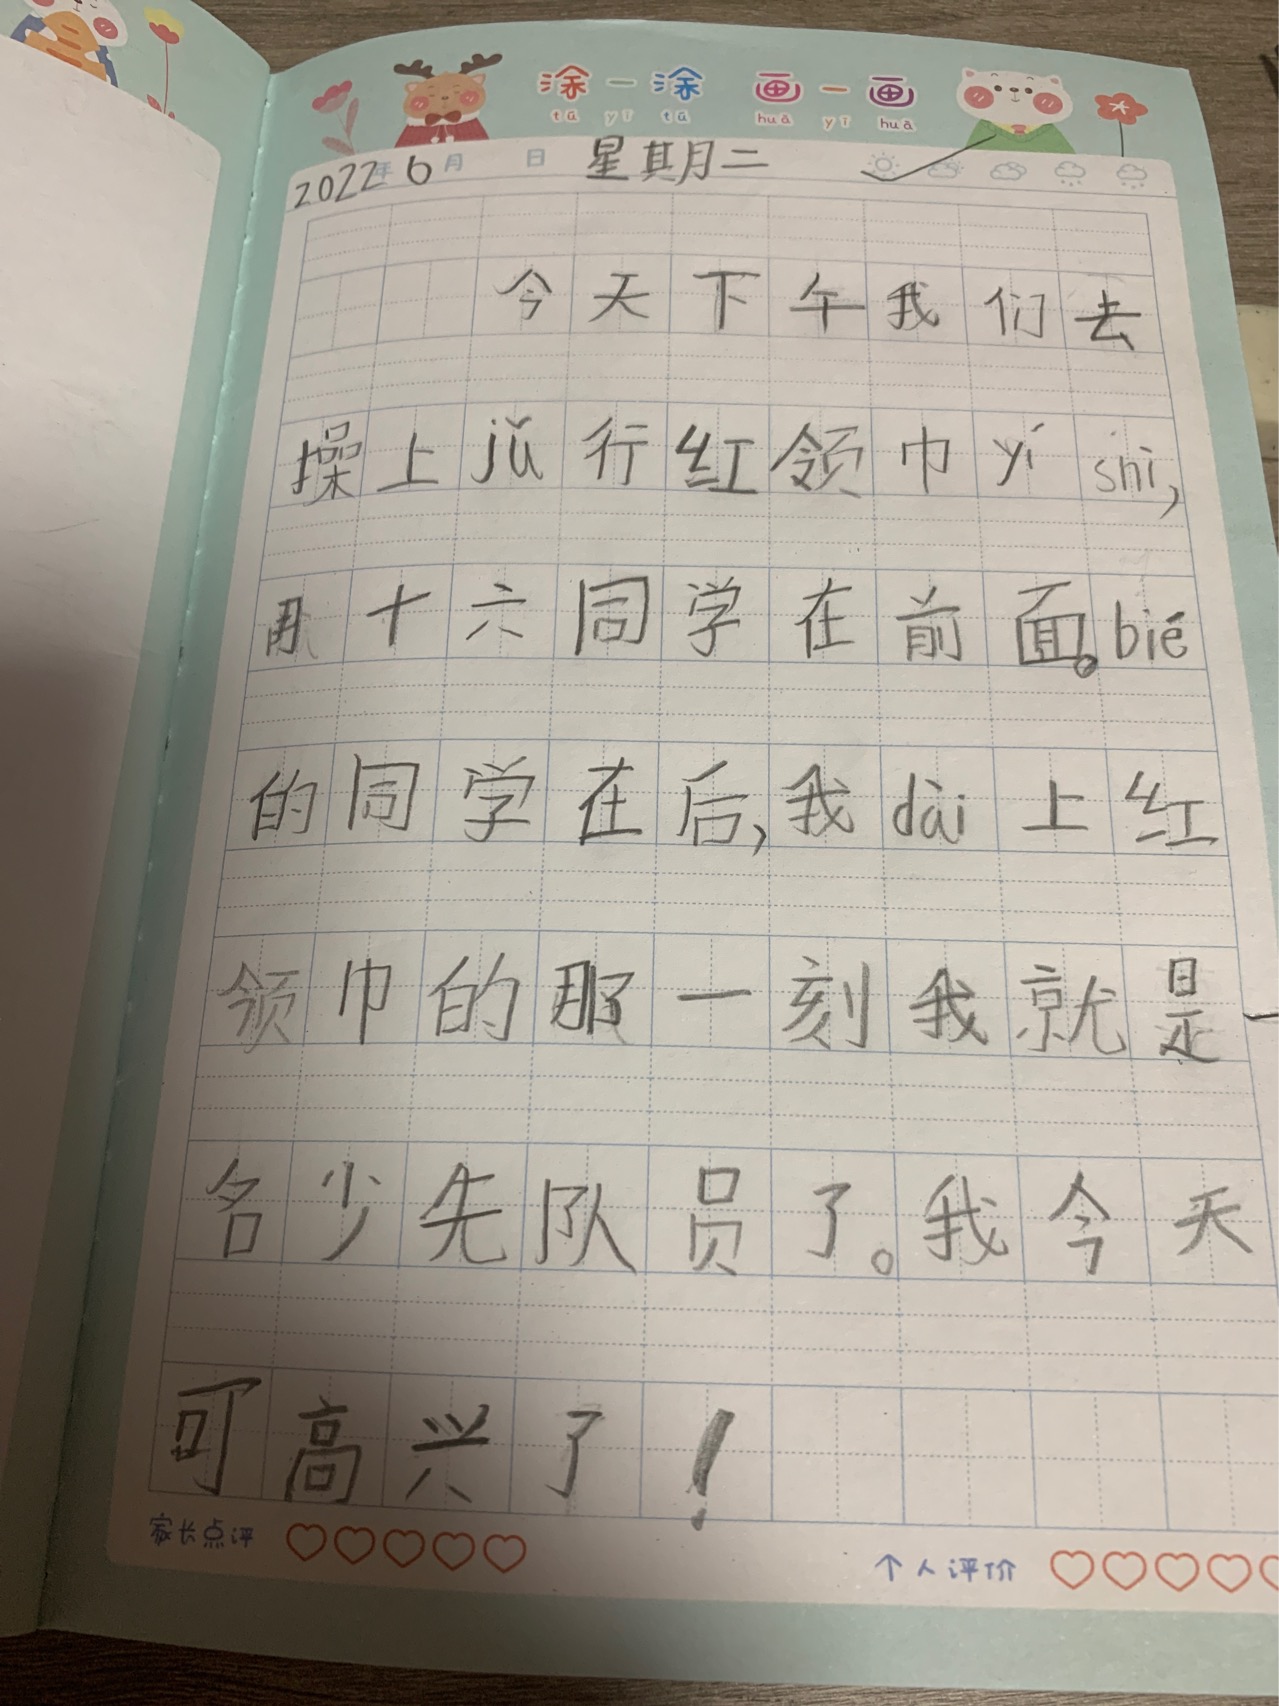 涂一涂 画一画
tú yī tú huà yī huà
2022年6月 日 星其月二
今天下午我们去
操上jǔ行红领巾yí shì,
十六同学在前面。bié
的同学在后,我dài上红
领巾的那一刻我就是
名少先队员了。我今天
可高兴了!
家长点评
个人评价